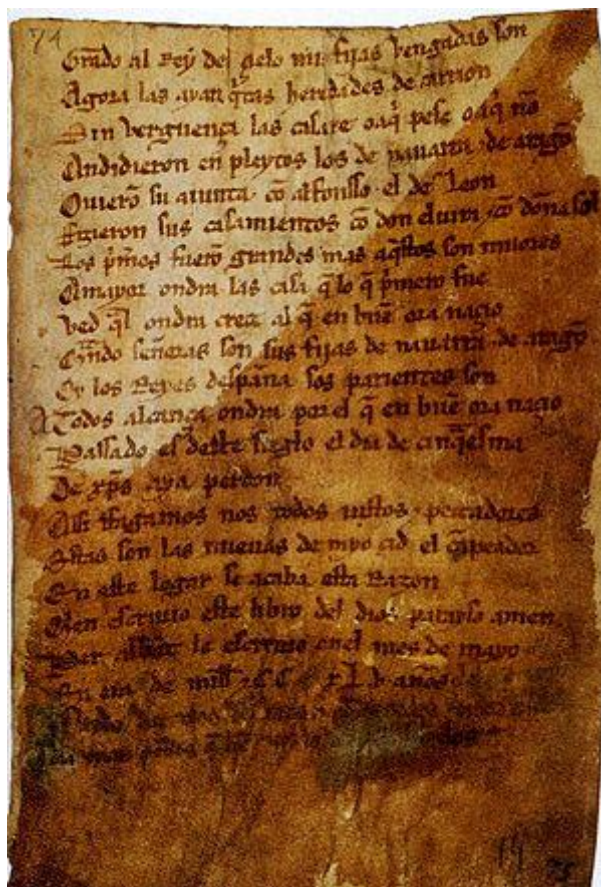 74
Grado al Rey del çielo mis fijas vengadas son
Agora las ayan q̃tas heredades de carrion
Sin verguença las casare o aq̃ pese o aq̃ nõ
Andidieron en pleytos los de nauarra ⁊ de aragõ
Ouierõ su aiunta cõ alfonsso el de Leon
Fizieron sus casamientos cõ don eluira ⁊ cõ doña sol
Los p̃meros fuerõ grandes mas aq̃stos son miiores
A mayor ondra las casa q̃ lo q̃ p̃mero fue
Ved q̃l ondra creçe al q̃ en buẽ ora naçio
Q̃ndo señoras son sus fijas de nauarra ⁊ de aragõ
Oy los Reyes despaña sos parientes son
A Todos alcança ondra por el q̃ en buẽ ora naçio
Passado es deste sieglo el dia de cinq̃esma
De xp̃s aya perdon
Assi ffagamos nos todos iustos ⁊ peccadores
Estas son las nueuas de myo çid el cãpeador
En este logar se acaba esta Razon
Quien escriuio este libro del dios parayso amen
Per abbat le escriuio en el mes de mayo
En era de mill ⁊ CC XL v años
14
75